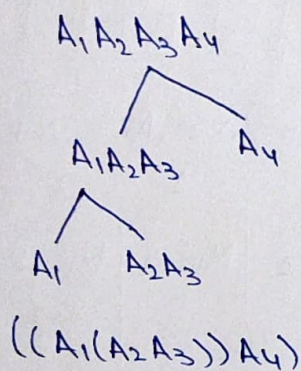 A₁A₂A₃A₄
A₁A₂A₃ A₄
A₁ A₂A₃
((A₁(A₂A₃))A₄)